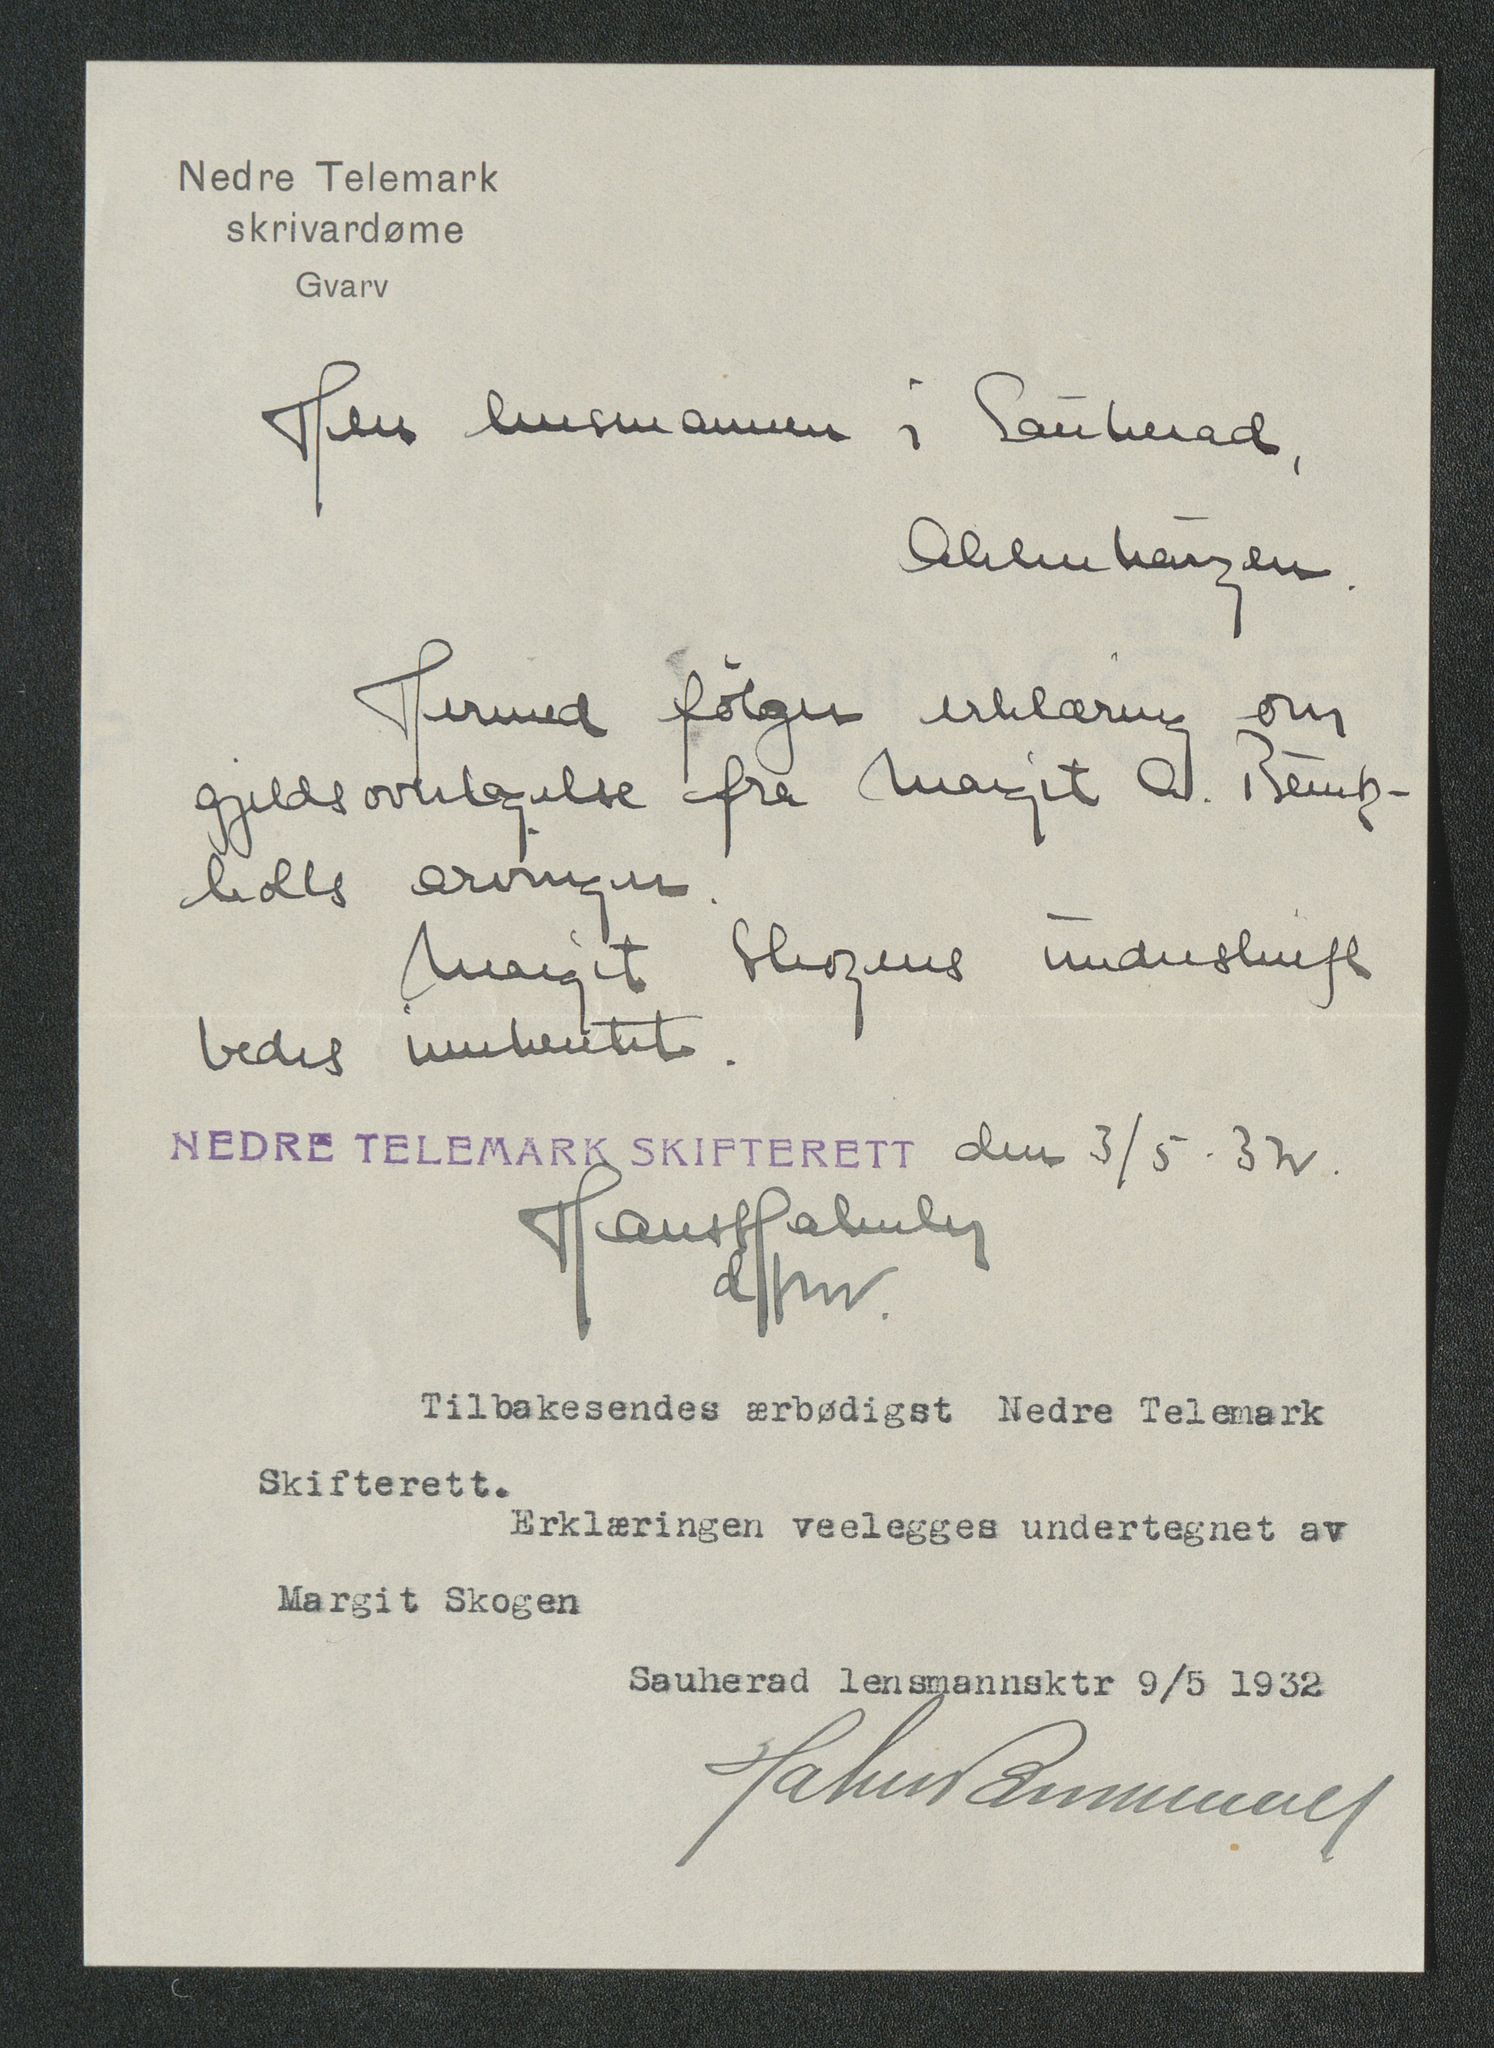 Nedre Telemark
skrivardøme
Gvarv
Herr lensmannen i Sauherad,
Akkerhaugen.
Hermed følger erklæring om
gjeldsovertagelse fra Margit A.
holts arvinger.
Margit Skogens underskrift
bedes innhentet.
NEDRE TELEMARK SKIFTERETT den 3/5-32.
Hans
Tilbakesendes ærbødigst Nedre Telemark
Skifterett.
Erklæringen veelegges undertegnet av
Margit Skogen
Sauherad lensmannsktr 9/5 1932